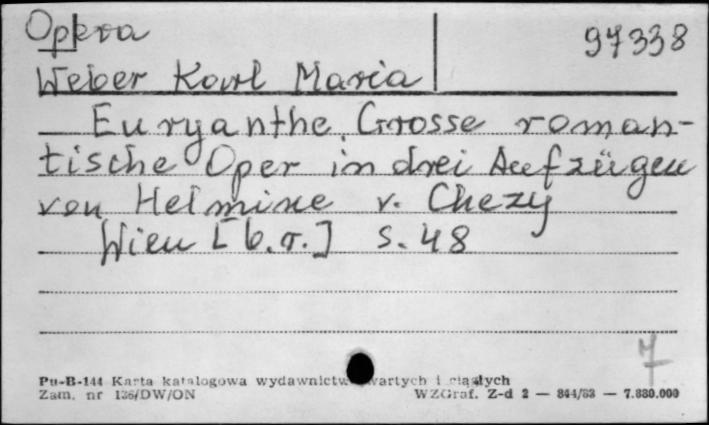 Opera 97338
Weber Karl Maria
Euryanthe. Grosse roman-
tische Oper in drei Aufzügen
von Helmine v. Chezy
Wien [b.r.] s. 48
7
Pu-B-144 Karta katalogowa wydawnictw zwartych i ciągłych
Zam. nr 136/DW/ON WZGraf. Z-d 2 — 844/83 — 7.880.000